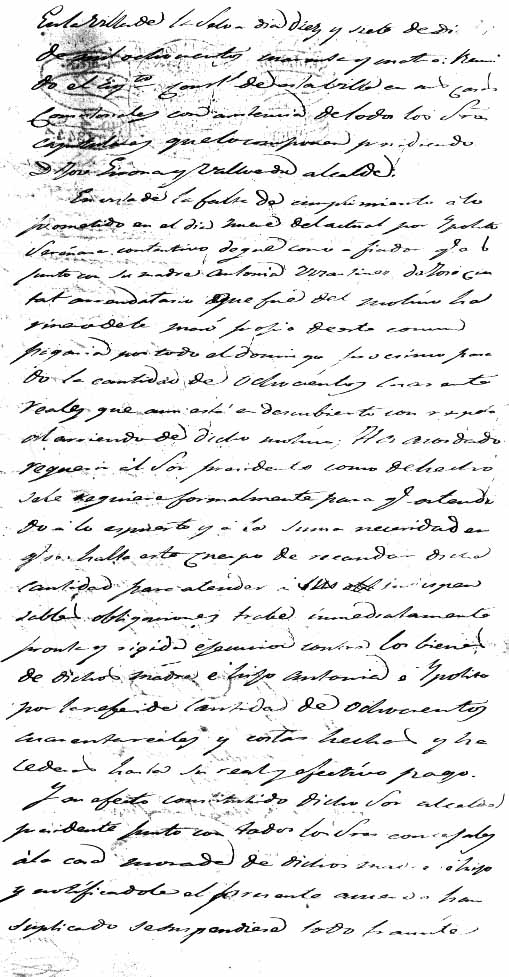 En la Villa de la Selva dia Diez y siete de di
de mil ochocientos cuarenta y cuatro: Reuni
do el Ayto. Constl. de esta Villa en sus casas
Consistoriales con asistencia de todos los Sres
capitulares que lo componen presidiendo
D. José Girona y alcalde;
En vista de la falta de cumplimiento a lo
prometido en el dia nueve del actual por Ypolito
de que como a fiador qe. es
junto con su madre Antonia de José
arrendatario que fué del molino ha
rinero de propio de este comun
pagaria por todo el domingo procsimo pasa
do la cantidad de Ochocientos cuarenta
reales que aun está en descubierto con respeto
al arriendo de dicho molino; Ha acordado
requerir al Sor. presidente como de hecho
se le requiere formalmente para qe. atendi
do a lo espuesto y a la suma necesidad en
qe. se halla este Cuerpo de recaudar dicha
cantidad para atender a sus indispen
sables obligaciones trabe inmediatamente
pronta y rigida ejecucion contra los bienes
de dichos madre é hijo Antonia é Ypolito
por la referida cantidad de Ochocientos
cuarenta reales y costas hechas y ha
cederas hasta su real y efectivo pago.
Y en efecto constituido dicho Sor. alcalde
presidente junto con todos los Sres concejales
á la casa morada de dichos madre é hijo
y notificadole el presente acuerdo han
suplicado se suspendiere todo tramite